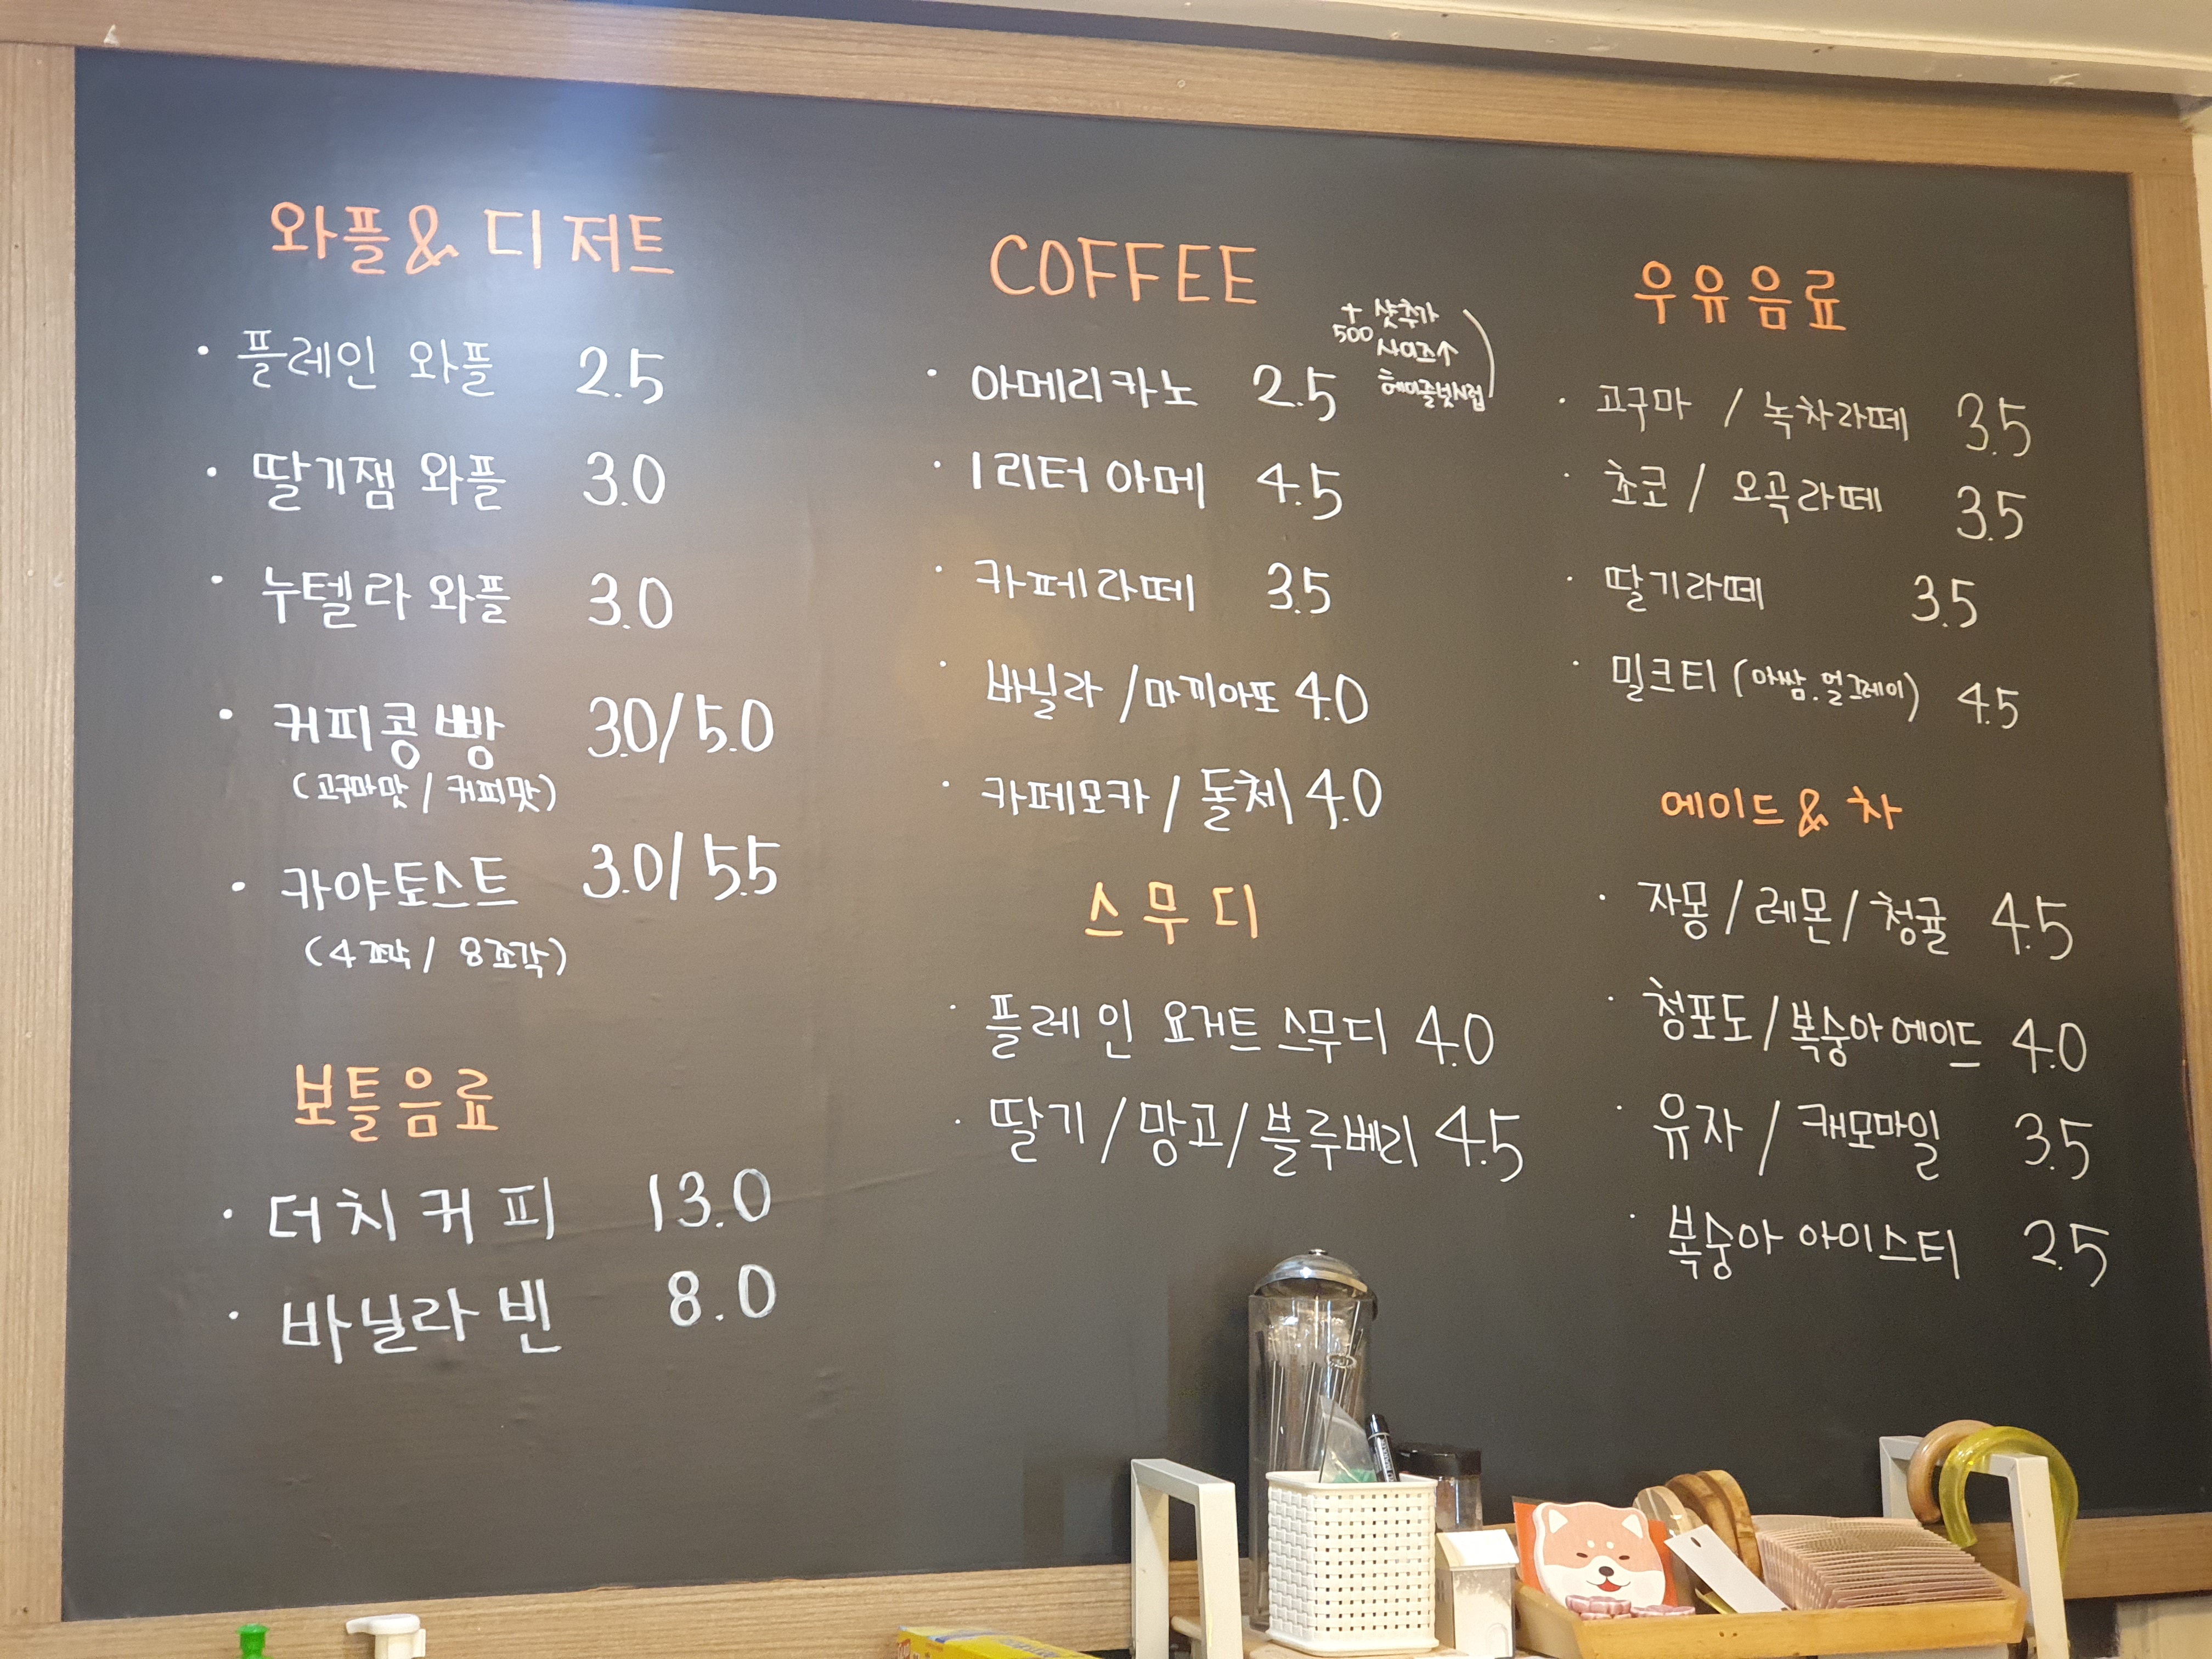 와플 & 디저트
· 플레인 와플 2.5
· 딸기잼 와플 3.0
· 누텔라 와플 3.0
· 커피콩빵 3.0/5.0
(고구마맛 / 커피맛)
· 카야토스트 3.0/5.5
(4조각 / 8조각)
보틀음료
· 더치커피 13.0
· 바닐라빈 8.0
COFFEE
+ 샷추가
500 사이즈↑
헤이즐넛시럽
· 아메리카노 2.5
· 1리터 아메 4.5
· 카페라떼 3.5
· 바닐라 / 마끼아또 4.0
· 카페모카 / 돌체 4.0
스무디
· 플레인 요거트 스무디 4.0
· 딸기 / 망고 / 블루베리 4.5
우유음료
· 고구마 / 녹차라떼 3.5
· 초코 / 오곡라떼 3.5
· 딸기라떼 3.5
· 밀크티 (아쌈.얼그레이) 4.5
에이드 & 차
· 자몽 / 레몬 / 청귤 4.5
· 청포도 / 복숭아에이드 4.0
· 유자 / 캐모마일 3.5
· 복숭아 아이스티 2.5